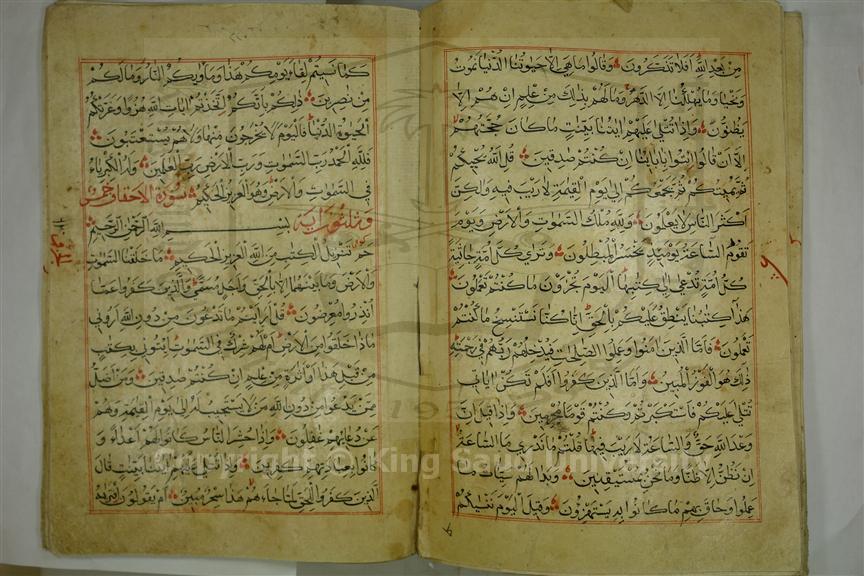 من بعد الله افلا تذكرون وقالوا ما هي الا حيوتنا الدنيا نموت
ونحيا وما يهلكنا الا الدهر وما لهم بذلك من علم ان هم الا
يظنون واذا تتلى عليهم ايتنا بينت ما كان حجتهم
الا ان قالوا ائتوا بابائنا ان كنتم صدقين قل الله يحييكم
ثم يميتكم ثم يجمعكم الى يوم القيمة لا ريب فيه ولكن
اكثر الناس لا يعلمون ولله ملك السموت والارض ويوم
تقوم الساعة يومئذ يخسر المبطلون وترى كل امة جاثية
كل امة تدعى الى كتبها اليوم تجزون ما كنتم تعملون
هذا كتبنا ينطق عليكم بالحق انا كنا نستنسخ ما كنتم
تعملون فاما الذين امنوا وعملوا الصلحت فيدخلهم ربهم في رحمته
ذلك هو الفوز المبين واما الذين كفروا افلم تكن اياتي
تتلى عليكم فاستكبرتم وكنتم قوما مجرمين واذا قيل ان
وعد الله حق والساعة لا ريب فيها قلتم ما ندري ما الساعة
ان نظن الا ظنا وما نحن بمستيقنين وبدا لهم سيات ما
عملوا وحاق بهم ما كانوا به يستهزون وقيل اليوم ننسيكم
كما نسيتم لقاء يومكم هذا وماويكم النار وما لكم
من نصرين ذلكم بانكم اتخذتم ايات الله هزوا وغرتكم
الحيوة الدنيا فاليوم لا يخرجون منها ولا هم يستعتبون
فلله الحمد رب السموت ورب الارض رب العلمين وله الكبرياء
في السموت والارض وهو العزيز الحكيم سورة الاحقاف خمس
وثلثون اية بسم الله الرحمن الرحيم
حم تنزيل الكتب من الله العزيز الحكيم ما خلقنا السموت
والارض وما بينهما الا بالحق واجل مسمى والذين كفروا عما
انذروا معرضون قل ارايتم ما تدعون من دون الله اروني
ماذا خلقوا من الارض ام لهم شرك في السموت ائتوني بكتب
من قبل هذا او اثرة من علم ان كنتم صدقين ومن اضل
ممن يدعوا من دون الله من لا يستجيب له الى يوم القيمة وهم
عن دعائهم غفلون واذا حشر الناس كانوا لهم اعداء و
كانوا بعبادتهم كفرين واذا تتلى عليهم ايتنا بينت قال
الذين كفروا للحق لما جاءهم هذا سحر مبين ام يقولون افتريه
Copyright © King Saud University